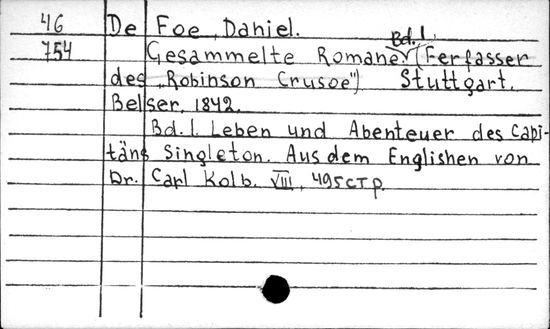 46 De Foe, Daniel.
754 Gesammelte Romane Bd. 1. (Ferfasser
des „Robinson Crusoe") Stuttgart.
Belser. 1842.
Bd. 1. Leben und Abenteuer des Capi-
täns Singleton. Aus dem Englishen von
Dr. Carl Kolb. VIII, 495 стр.